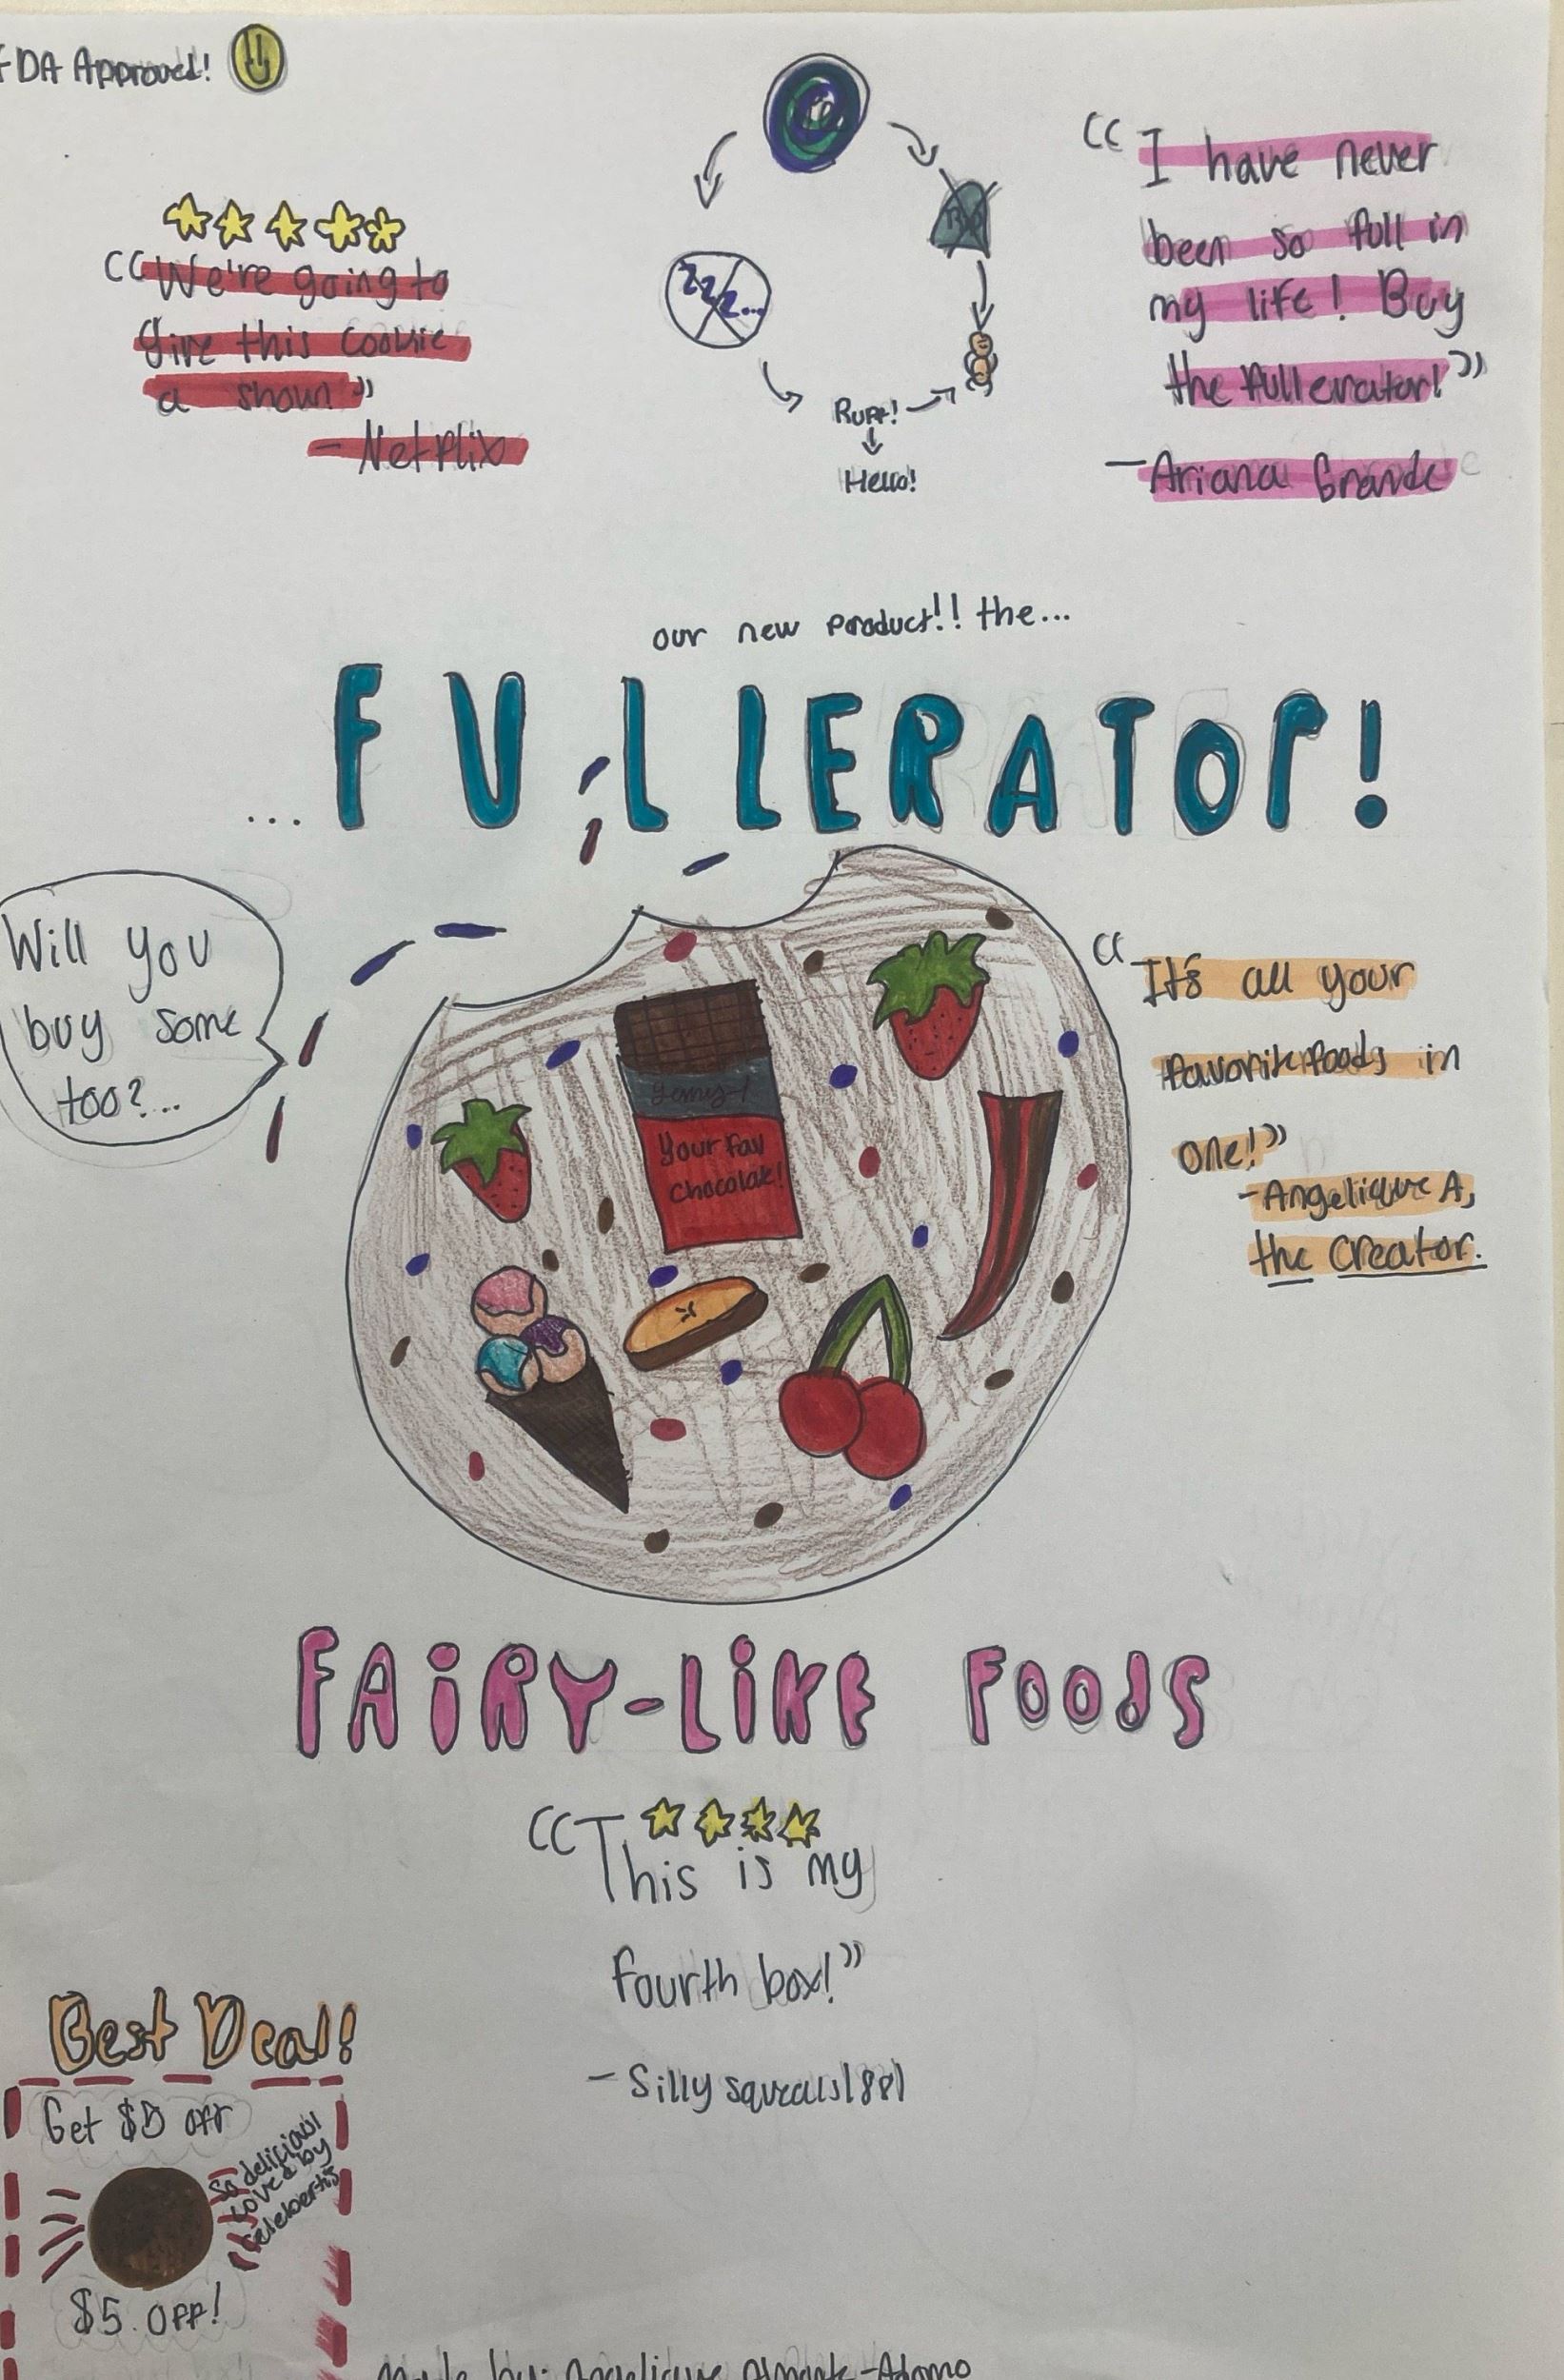 FDA Approved!
"We're going to
give this cookie
a show"
- Netflix
zzz...
Ruff!
Hello!
"I have never
been so full in
my life! Buy
the Fullerator!"
- Ariana Grande
our new product!! the...
...FULLERATOR!
Will you
buy some
too?...
Your fav
chocolate!
"It's all your
favorite foods in
one!"
- Angelique A,
the creator.
FAiRY-LiKE FOODS
"This is my
fourth box!"
- Silly squeals1881
Best Deal!
Get $5 off
So delicious!
Loved by
celeberties
$5 OFF!
Made by: Angelique